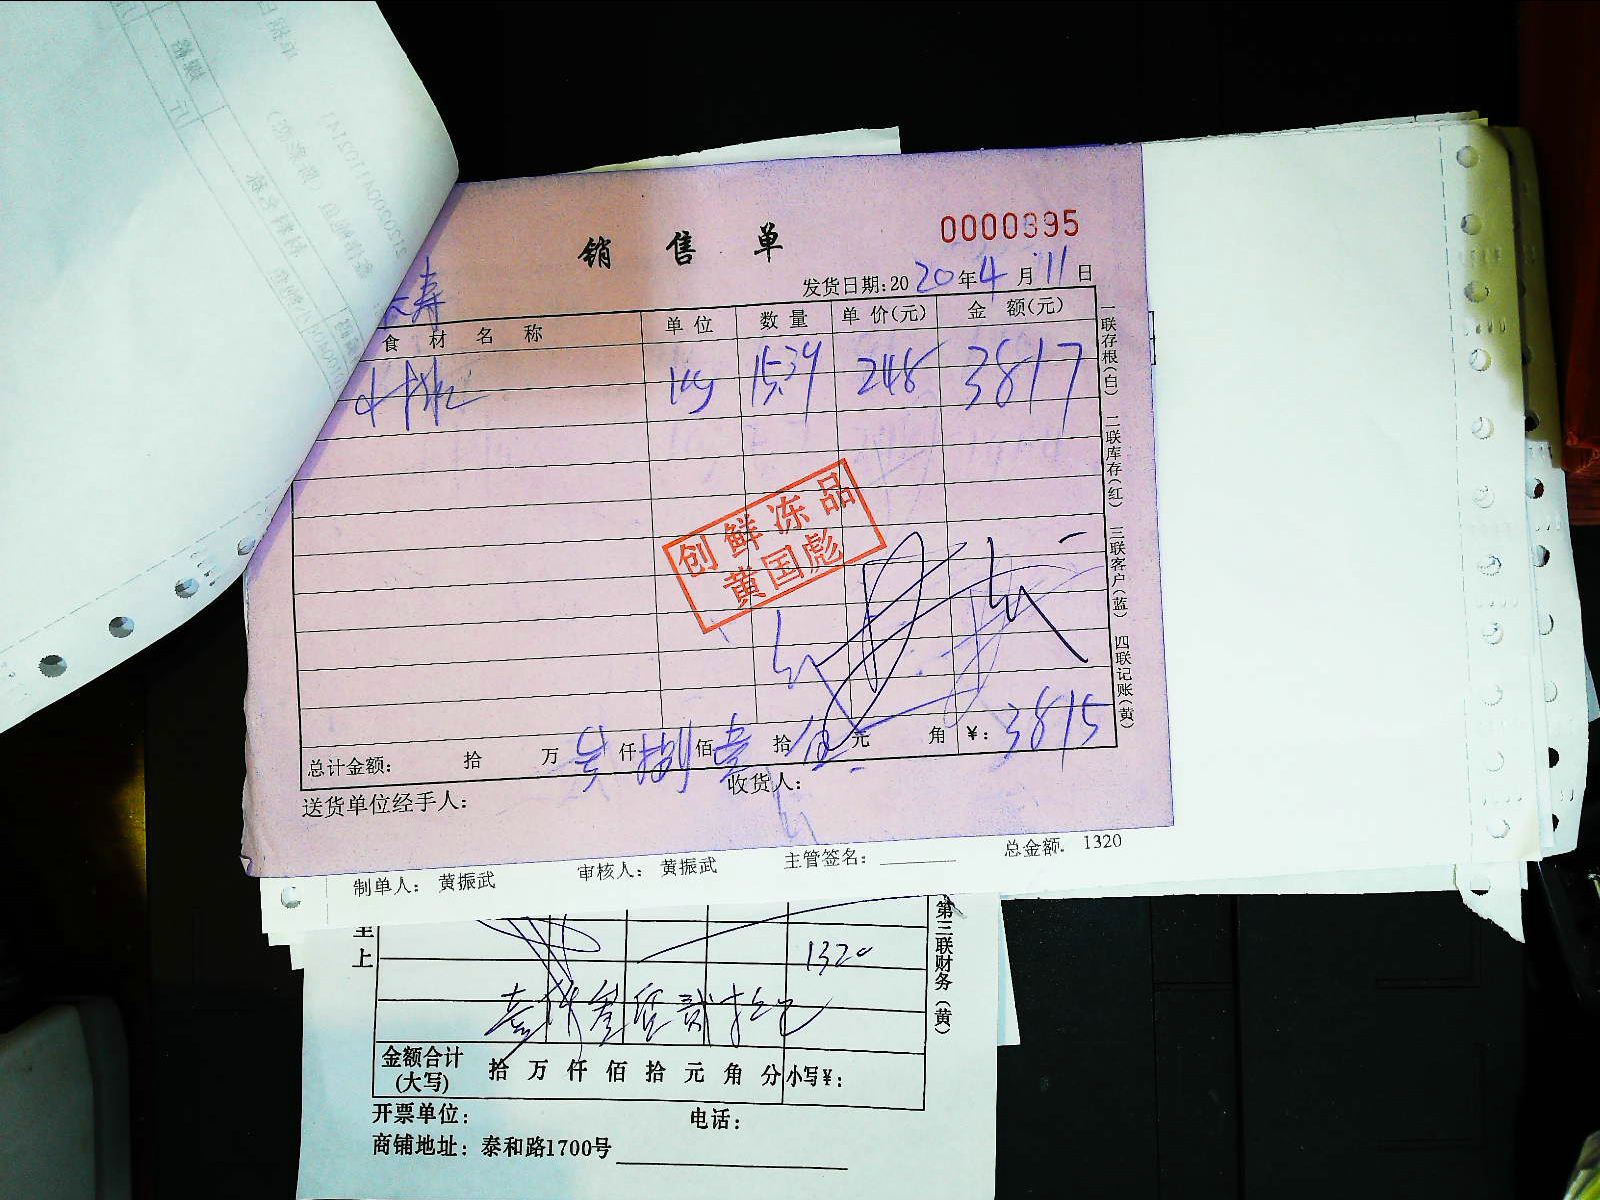 销 售 单
0000395
发货日期:2020年4月11日
寿
食 材 名 称 单 位 数 量 单 价(元) 金 额(元)
kg 15.39 248 3817
一联存根(白) 二联库存(红) 三联客户(蓝) 四联记账(黄)
创鲜冻品
黄国彪
总计金额: 拾 万 仟捌佰壹拾伍元 角 ¥:3815
送货单位经手人: 收货人:
制单人: 黄振武 审核人: 黄振武 主管签名: 总金额. 1320
至
上
第三联财务(黄)
1320
壹仟叁佰贰拾元
金额合计
(大写) 拾 万 仟 佰 拾 元 角 分 小写¥:
开票单位: 电话:
商铺地址: 泰和路1700号